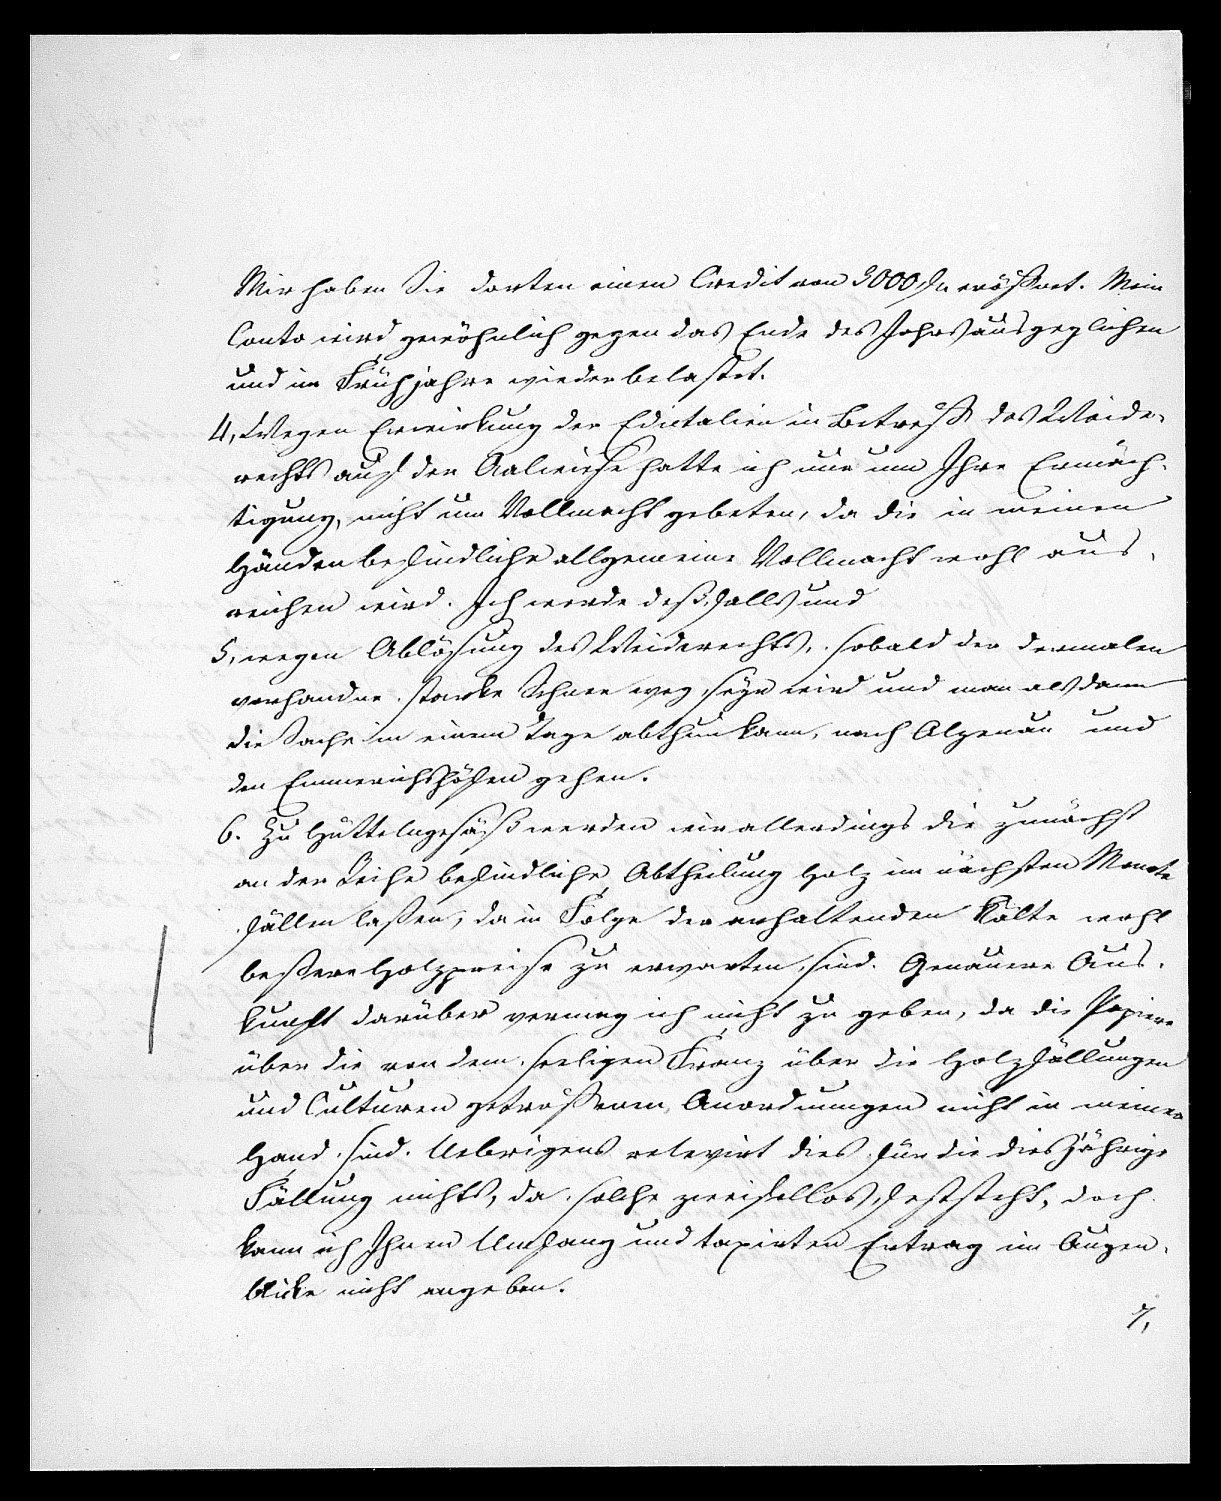 Mir haben Sie dorten einen Credit von 3000 fn eröffnet. Mein
Conto wird gewöhnlich gegen das Ende des Jahrs ausgeglichen
und im Frühjahre wieder belastet.
4, Wegen Erwirkung der Edictalien in Betreff des Weide-
rechts auf der Aalwiese hatte ich nur um Ihre Ermäch-
tigung, nicht um Vollmacht gebeten, da die in meinen
Händen befindliche allgemeine Vollmacht wohl aus-
reichen wird. Ich werde deßfalls und
5, wegen Ablösung des Weiderechts, sobald der dermalen
vorhandne starke Schnee weg seyn wird und man alsdann
die Sache in einem Tage abthun kann, nach Alzenau und
den Emmerichshöfen gehen.
6. Zu Hüttelngesäß werden wir allerdings die zunächst
an der Reihe befindliche Abtheilung Holz im nächsten Monate
fällen laßen, da in Folge der anhaltenden Kälte wohl
beßere Holzpreise zu erwarten sind. Genauere Aus-
kunft darüber vermag ich nicht zu geben, da die Papiere
über die von dem seeligen Franz über die Holzfällungen
und Culturen getroffenen Anordnungen nicht in meiner
Hand sind. Uebrigens relevirt dies für die diesjährige
Fällung nichts, da solche zweifellos feststeht, doch
kann ich Ihnen Umfang und taxirten Ertrag im Augen-
blicke nicht angeben.
7,